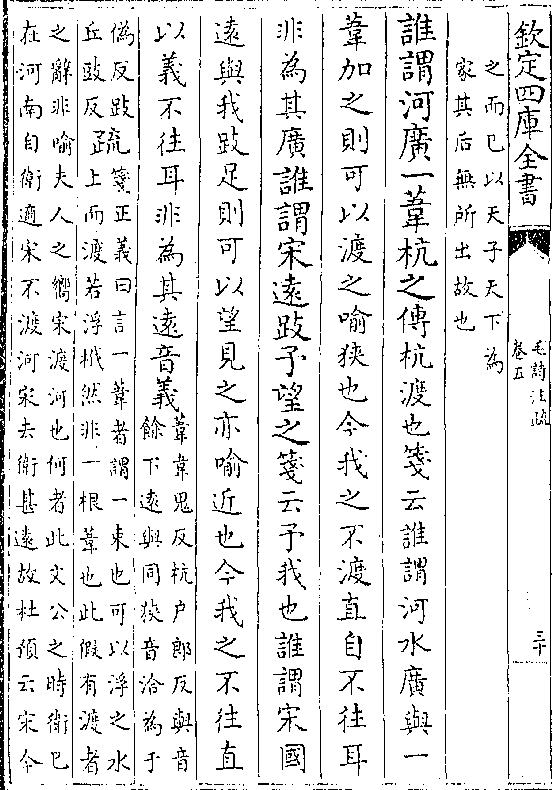 欽定四庫全書
毛詩注疏
卷五
三十
之而已以天子天下為
家其后無所出故也
誰謂河廣一葦杭之傳杭渡也箋云誰謂河水廣與一
葦加之則可以渡之喻狹也今我之不渡直自不往耳
非為其廣誰謂宋遠跂予望之箋云予我也誰謂宋國
遠與我跂足則可以望見之亦喻近也今我之不往直
以義不往耳非為其遠音義葦韋鬼反杭户郎反與音
餘下遠與同狹音洽為于
偽反跂
丘豉反疏箋正義曰言一葦者謂一束也可以浮之水
上而渡若浮栰然非一根葦也此假有渡者
之辭非喻夫人之嚮宋渡河也何者此文公之時衛已
在河南自衛適宋不渡河宋去衛甚遠故杜預云宋今